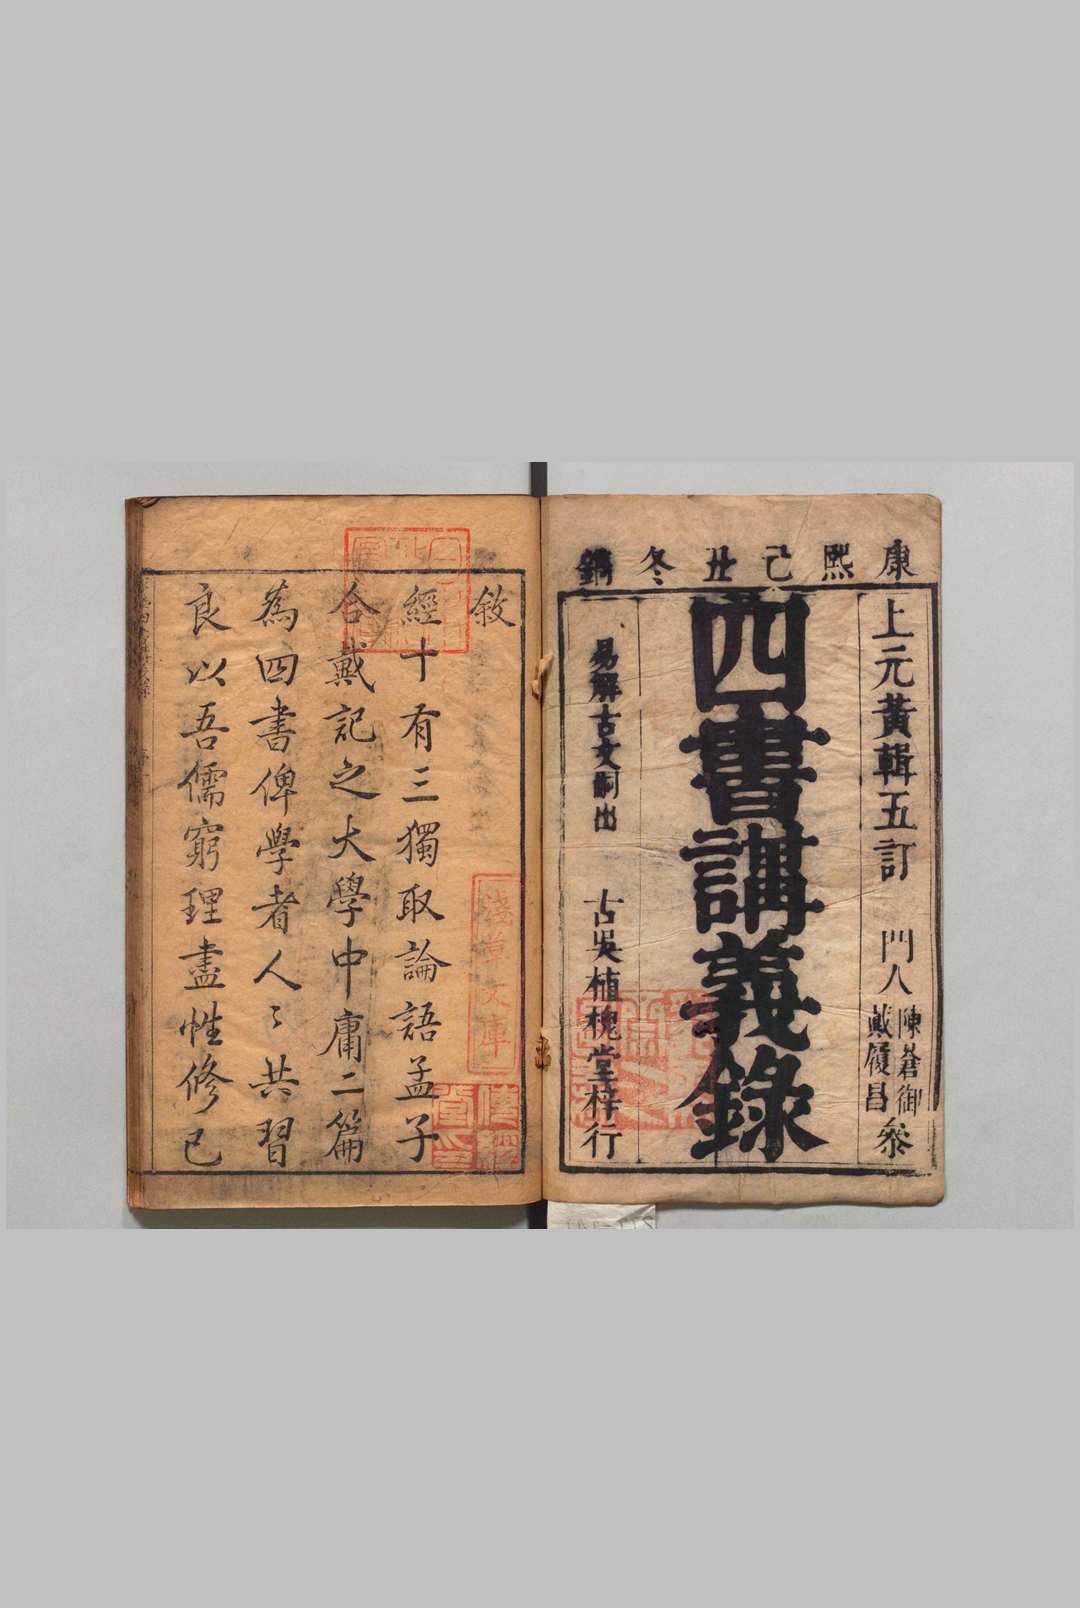 康熙己丑冬鐫
上元黃輯五訂 門人 陳蒼御 戴履昌 參
四書講義錄
易解古文嗣出
古吳植槐堂梓行
敘
經十有三獨取論語孟子
合戴記之大學中庸二篇
為四書俾學者人〻共習
良以吾儒窮理盡性修己
淺草文庫